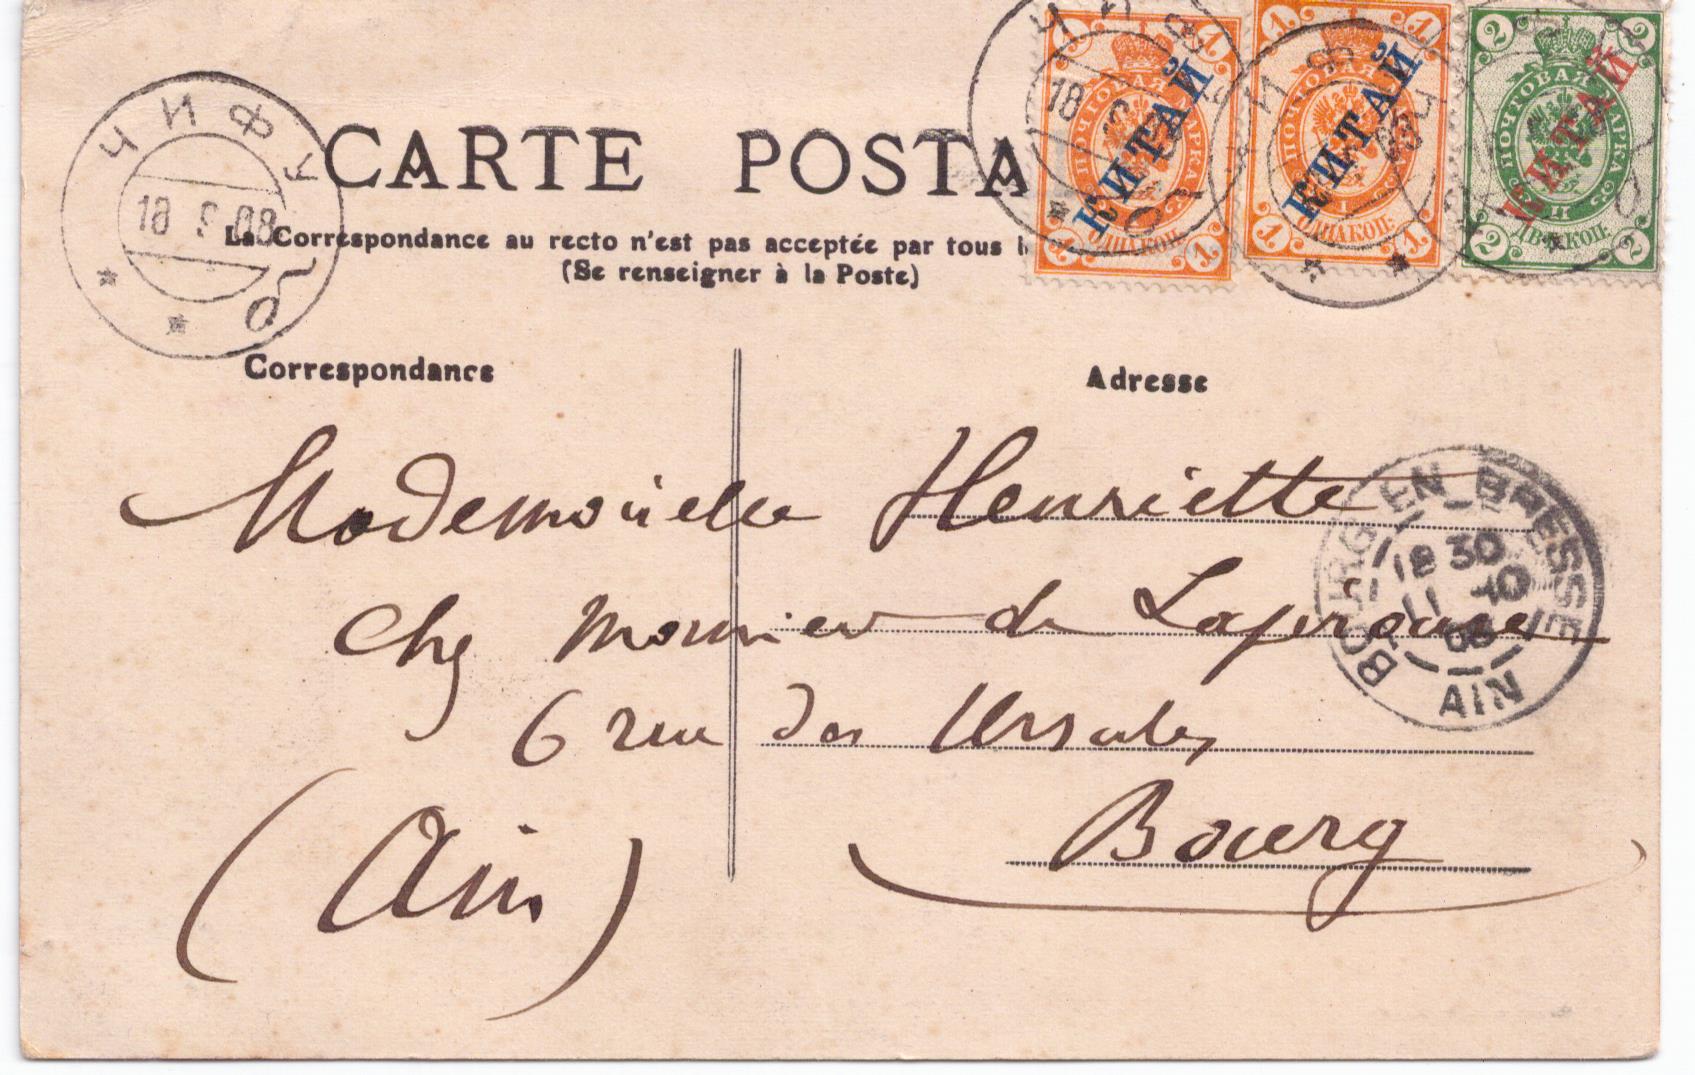 ЧИФУ
18 9 08
CARTE POSTA
La Correspondance au recto n'est pas acceptée par tous
(Se renseigner à la Poste)
1 1
ПОЧТОВАЯ МАРКА
КИТАЙ
ОДНА КОП.
1 1
1 1
ПОЧТОВАЯ МАРКА
КИТАЙ
ОДНА КОП.
1 1
2 2
ПОЧТОВАЯ МАРКА
КИТАЙ
ДВѢ КОП.
2 2
Correspondance
Adresse
Mademoiselle Henriette
chez Monsieur de Lapérouse
6 rue des Ursules
Bourg
(Ain)
BOURG-EN-BRESSE
18 30
11 10
08
AIN